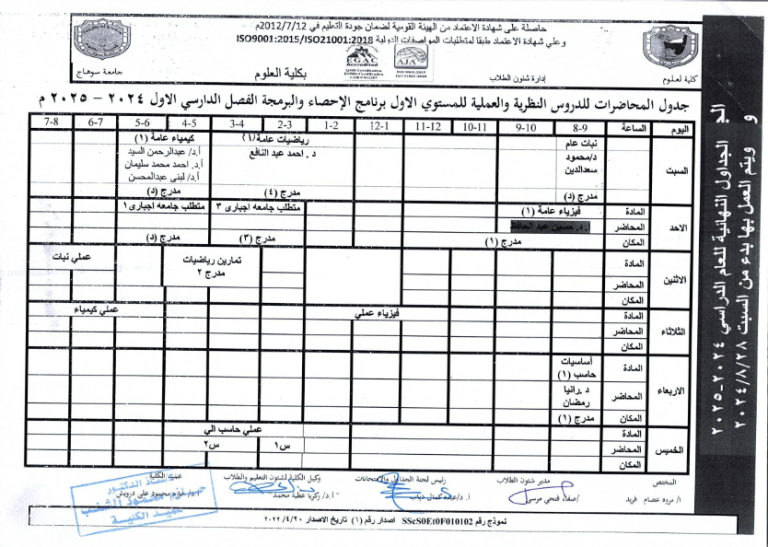 حاصلة على شهادة الاعتماد من الهيئة القومية لضمان جودة التعليم في 2012/7/12م
وعلي شهادة الاعتماد طبقا لمتطلبات المواصفات الدولية ISO9001:2015/ISO21001:2018
EGAC
AJA
كلية العلوم
إدارة شئون الطلاب
بكلية العلوم
جامعة سوهاج
جدول المحاضرات للدروس النظرية والعملية للمستوي الاول برنامج الإحصاء والبرمجة الفصل الدارسي الاول ٢٠٢٤ - ٢٠٢٥ م
اليوم الساعة 8-9 9-10 10-11 11-12 12-1 1-2 2-3 3-4 4-5 5-6 6-7 7-8
السبت
نبات عام
د/محمود
سعدالدين
مدرج (د)
رياضيات عامة(١)
د. احمد عبد النافع
مدرج (٤)
كيمياء عامة (١)
أ.د/ عبدالرحمن السيد
أ.د. احمد محمد سليمان
أ.د/ لبنى عبدالمحسن
مدرج (د)
الاحد
المادة
المحاضر
المكان
فيزياء عامة (١)
د. حسين عبد الحافظ
مدرج (١)
متطلب جامعه اجبارى ٣
مدرج (٣)
متطلب جامعه اجبارى١
مدرج (د)
الاثنين
المادة
المحاضر
المكان
تمارين رياضيات
مدرج ٢
عملي نبات
الثلاثاء
المادة
المحاضر
المكان
فيزياء عملي
عملي كيمياء
الاربعاء
المادة
المحاضر
المكان
أساسيات
حاسب (١)
د. رانيا
رمضان
مدرج (١)
الخميس
المادة
المحاضر
المكان
عملي حاسب الي
س١
س٢
المختص
مدير شئون الطلاب
رئيس لجنة الجداول والامتحانات
وكيل الكلية لشئون التعليم والطلاب
عميد الكلية
ا/ مروه عصام فريد
صفاء فتحي مرسي
أ.د/ زكريا عطية محمد
الأستاذ الدكتور
عميد الكلية
نموذج رقم SScS0Et0F010102 اصدار رقم (١) تاريخ الاصدار ٢٠٢٢/٤/٢٠
الجداول النهائية للعام الدراسي ٢٠٢٤-٢٠٢٥
و ويتم العمل بها بدء من السبت ٢٠٢٤/٨/٢٨